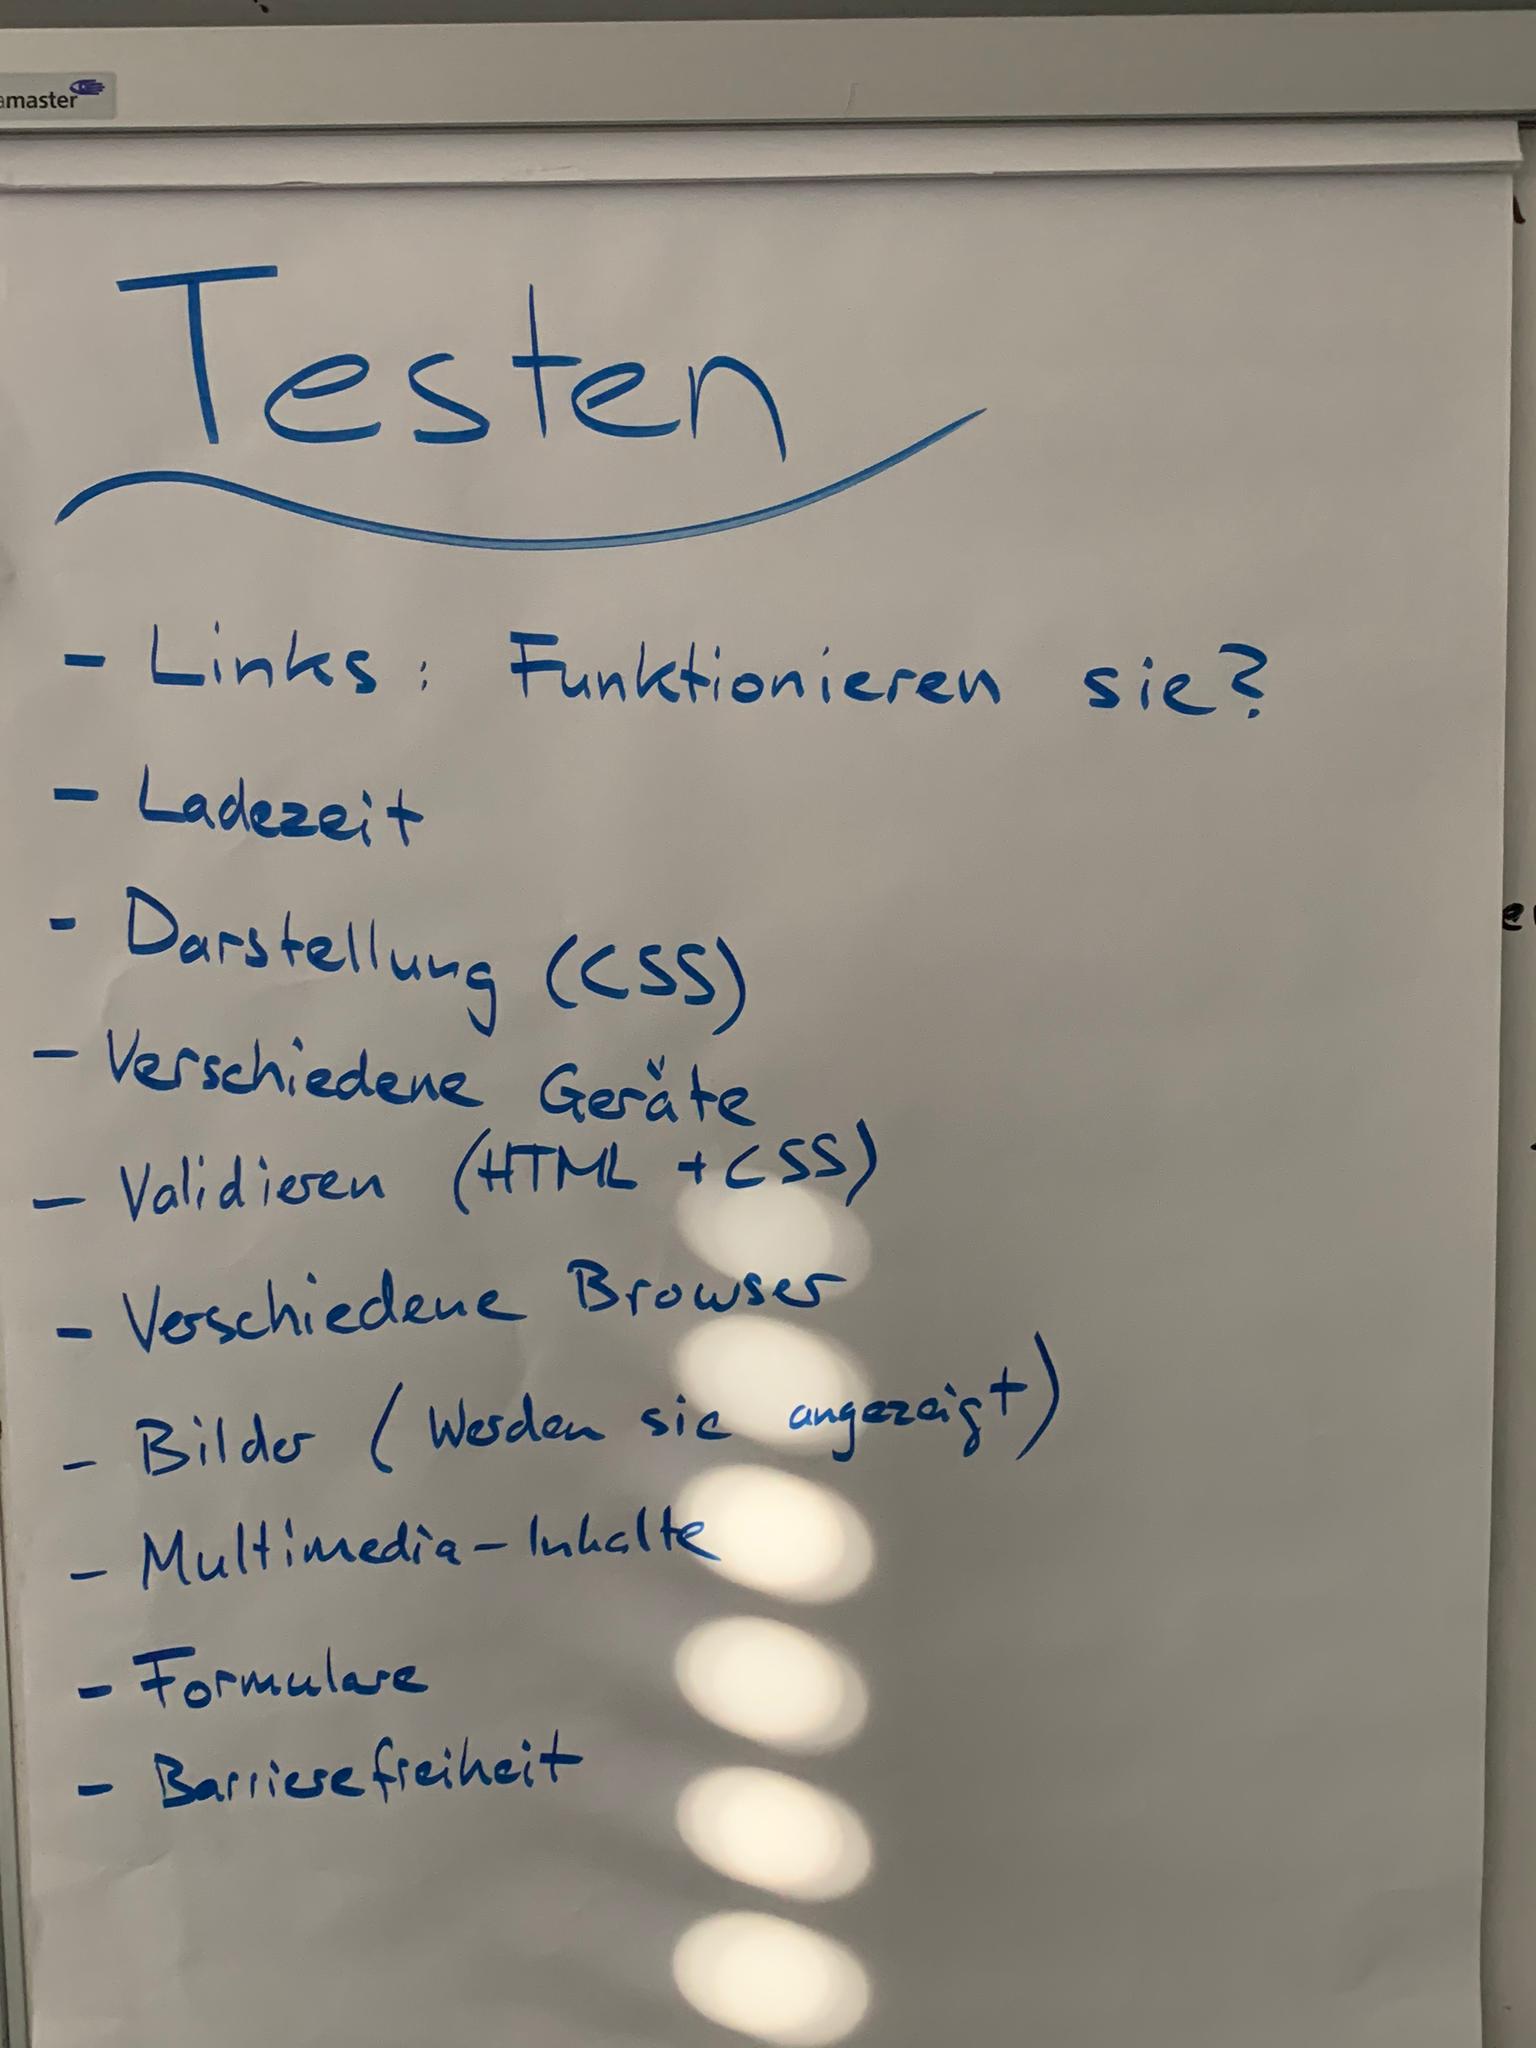 amaster
Testen
- Links: Funktionieren sie?
- Ladezeit
- Darstellung (CSS)
- Verschiedene Geräte
- Validieren (HTML + CSS)
- Verschiedene Browser
- Bilder (Werden sie angezeigt)
- Multimedia-Inhalte
- Formulare
- Barrierefreiheit